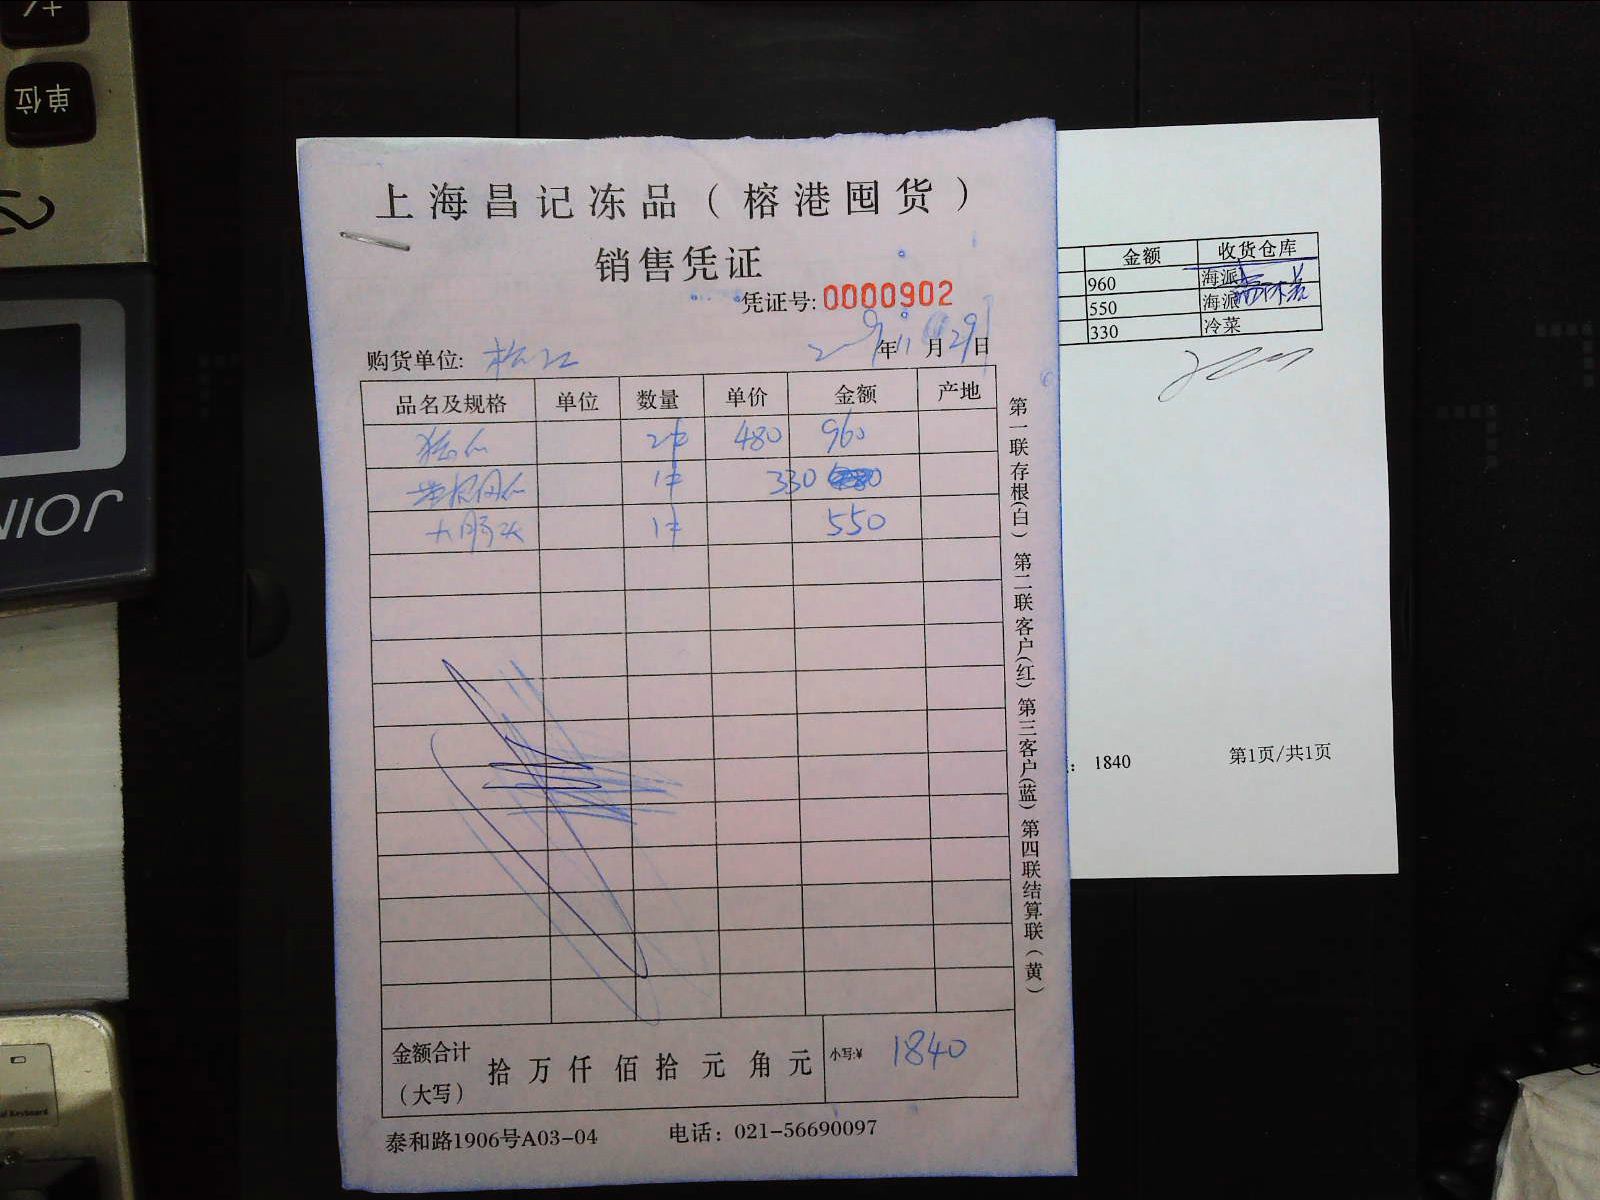 单位
上海昌记冻品（榕港囤货）
销售凭证
凭证号: 0000902
购货单位: 松江 年11月29日
品名及规格 单位 数量 单价 金额 产地
2件 480 960
1件 330
1件 550
金额合计（大写） 拾 万 仟 佰 拾 元 角 元 小写:¥ 1840
泰和路1906号A03-04 电话：021-56690097
第一联存根(白) 第二联客户(红) 第三客户(蓝) 第四联结算联(黄)
金额 收货仓库
960 海派
550 海派
330 冷菜
1840 第1页/共1页
JOIN